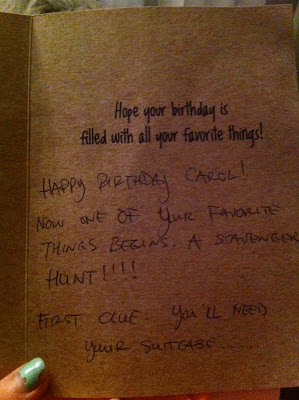 Hope your birthday is
filled with all your favorite things!
HAPPY BIRTHDAY CAROL!
NOW ONE OF YOUR FAVORITE
THINGS BEGINS. A SCAVENGER
HUNT!!!!
FIRST CLUE: YOU'LL NEED
YOUR SUITCASE.....